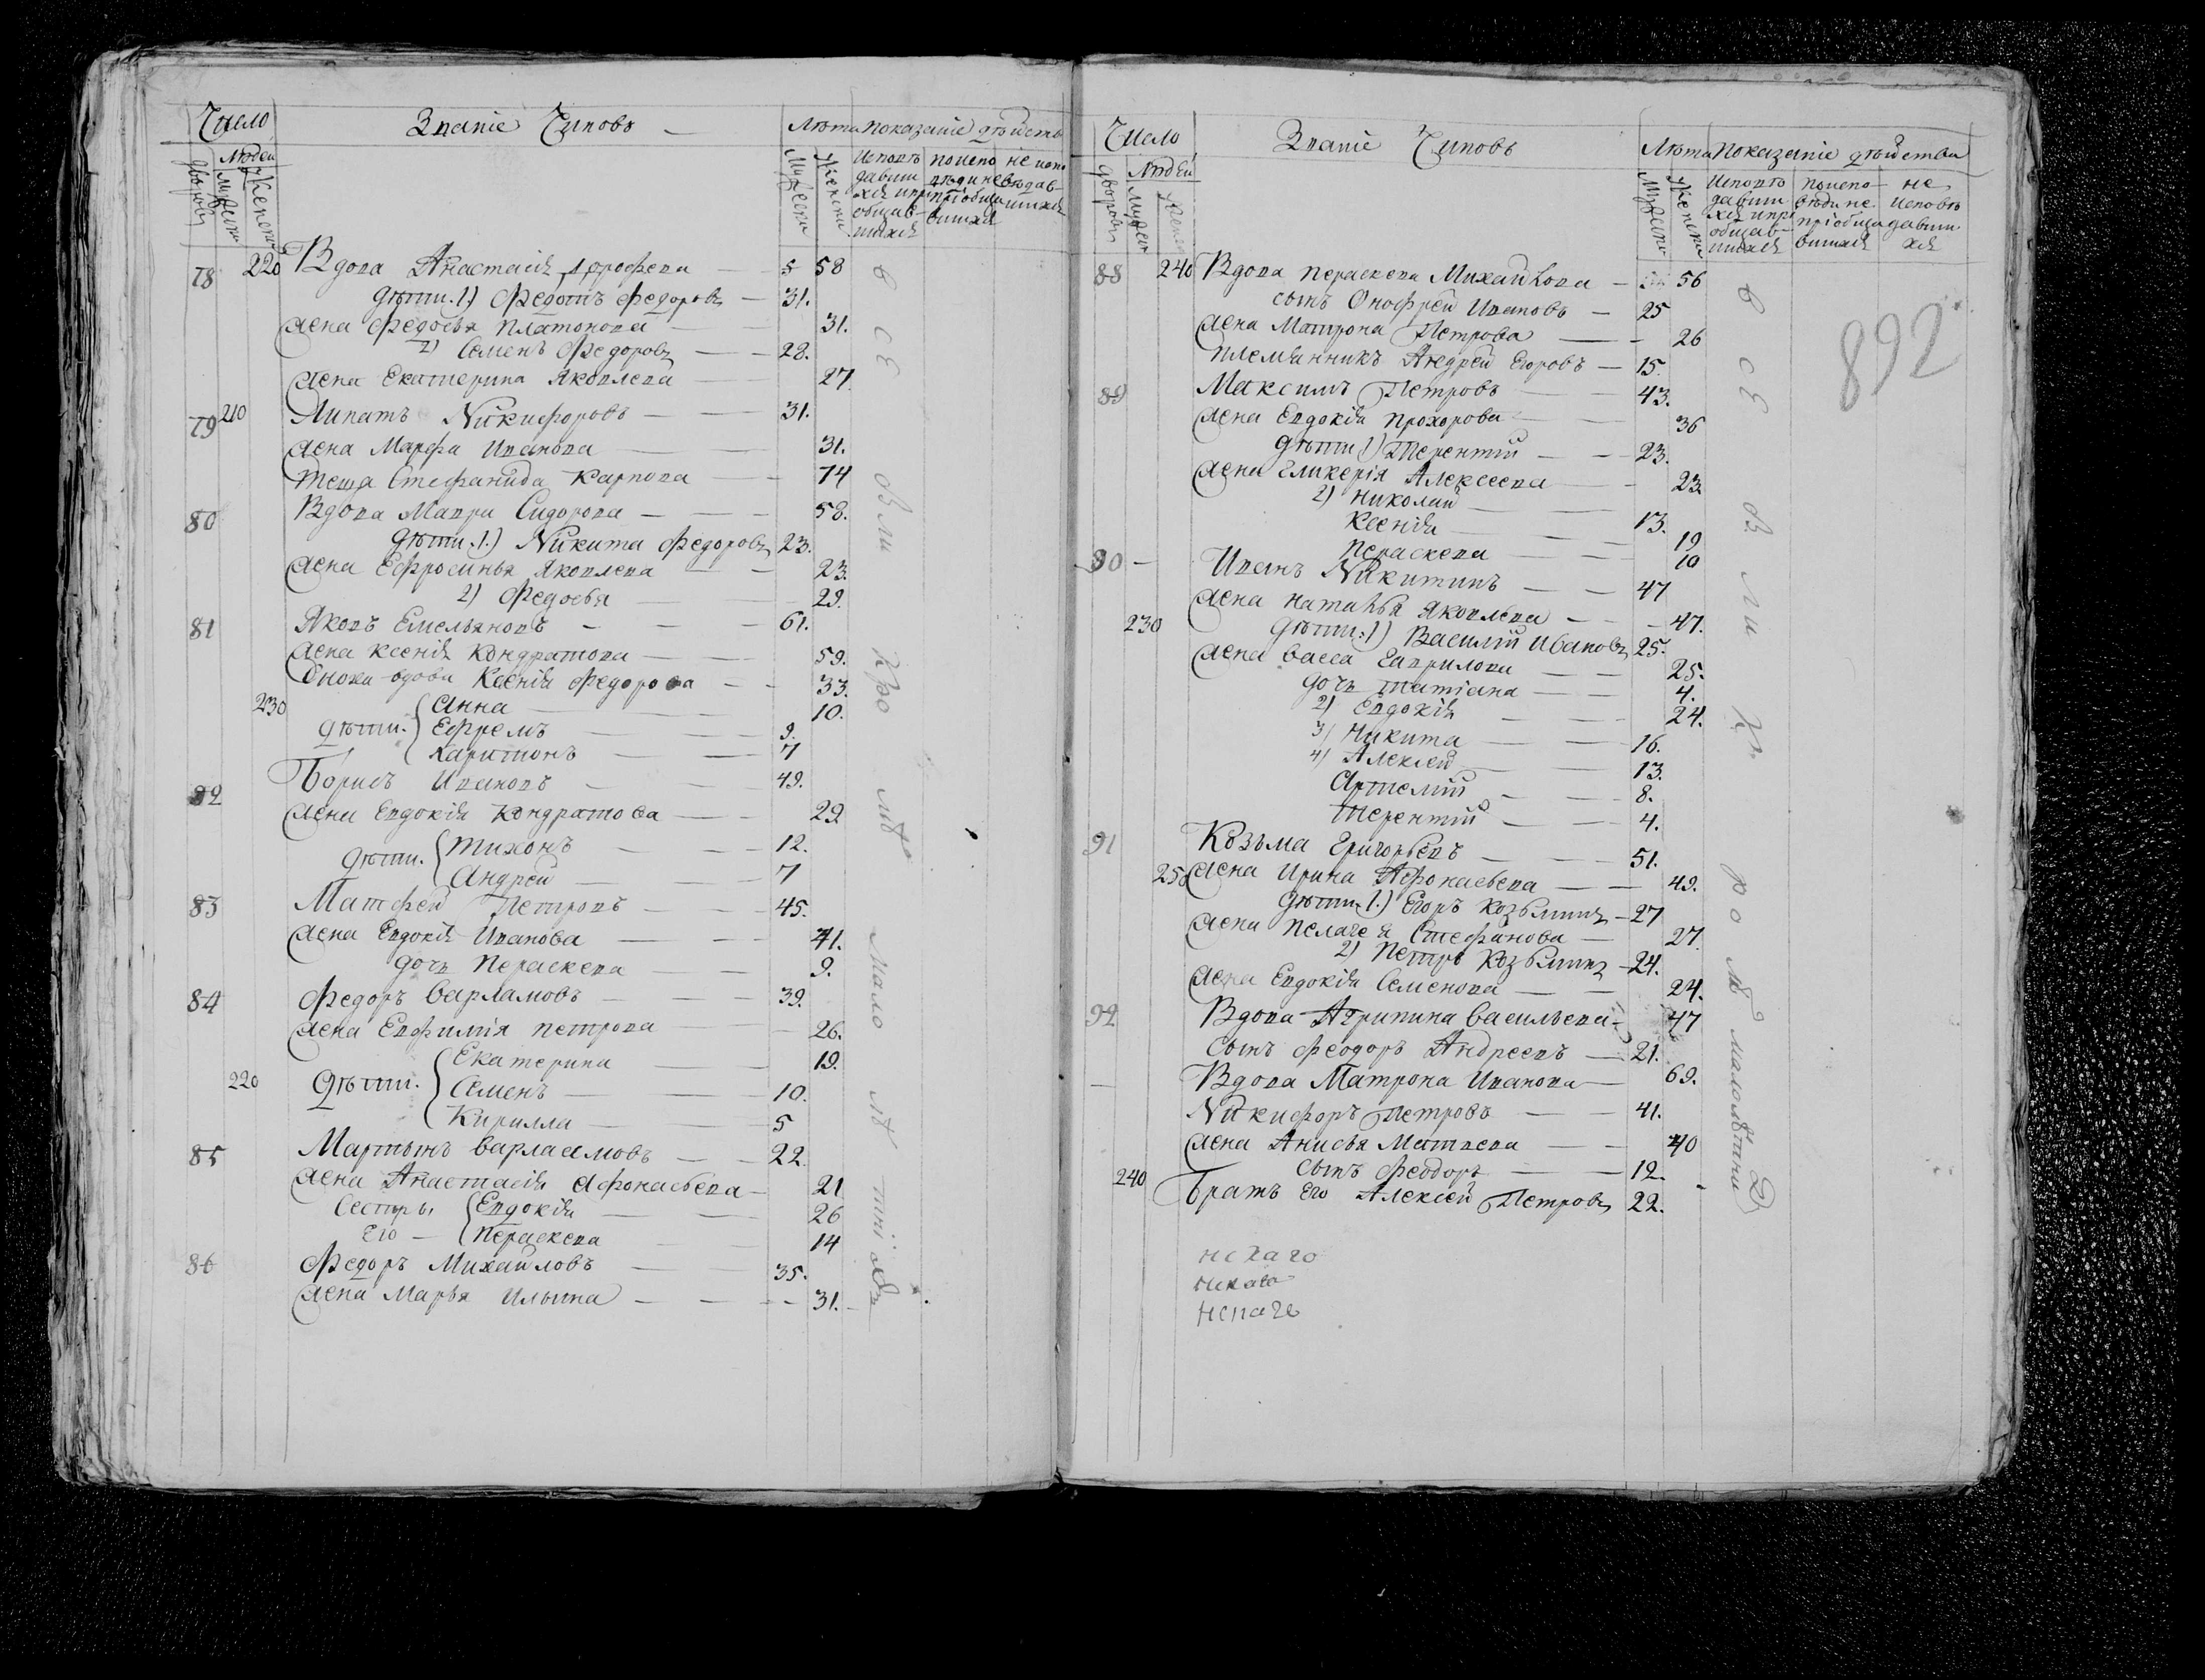 Число
Званіе Чиновъ
Лѣта показаніе дѣйства
дворовъ
Людей
мужеска
женска
мужеска
женска
исповѣдавшихся и пріобщавшихся
220
78 Вдова Анастасія Дорофеева 58
дѣти. 1) Федотъ Федоровъ 31.
жена Федосья Платонова 31.
2) Семенъ Федоровъ 28.
жена Екатерина Яковлева 27
79 210 Липатъ Никифоровъ 31.
жена Марфа Иванова 31.
теща Стефанида Карпова 74
80 Вдова Мавра Сидорова 58.
дѣти. 1.) Никита Федоровъ 23.
жена Ефросинья Яковлева 23.
2) Федосья 29.
81 Яковъ Емельяновъ 61.
жена Ксенія Кондратова 59.
Сноха вдова Ксенія Федорова 33.
230 Анна 10.
дѣти. Ефремъ 9.
Харитонъ 7
82 Борисъ Ивановъ 49.
жена Евдокія Кондратова 29.
дѣти. Тихонъ 12.
Андрей 7
83 Матфей Петровъ 45.
жена Евдокія Иванова 41.
дочь Параскева 9.
84 Федоръ Варламовъ 39.
жена Евфимія Петрова 26.
Екатерина 19.
220 дѣти. Семенъ 10.
Кирилла 5
85 Мартынъ Варламовъ 22.
жена Анастасія Афонасьева 21
Сестры Евдокія 26
его Пераскева 14
86 Федоръ Михайловъ 35.
жена Марья Ильина 31.
всѣ были кромѣ малолѣтніихъ
Число
Званіе Чиновъ
Лѣта показаніе дѣйства
дворовъ
Людей
мужеска
женска
исповѣдавшихся и приобщавшихся
поисповѣди не пріобщавшихся
не исповѣдавшихся
892
88 240 Вдова Пераскева Михайлова 56
сынъ Онофрей Ивановъ 25
жена Матрона Петрова 26
племянникъ Андрей Егоровъ 15.
89 Максимъ Петровъ 43.
жена Евдокія Прохорова 36
дѣти 1) Терентій 23.
жена Гликерія Алексеева 23.
2) Николай 13.
Ксенія 19
Пераскева 10
90 Иванъ Никитинъ 47
жена Наталья Яковлева 47.
230 дѣти: 1) Василій Ивановъ 25.
жена Васса Гаврилова 25.
дочь Татіана 4.
2) Евдокія 24.
3) Никита 16.
4) Алексей 13.
Артемій 8.
Терентій 4.
91 Козьма Григорьевъ 51.
250 жена Ирина Афонасьева 49.
дѣти 1.) Егоръ Козьминъ 27
жена Пелагея Стефанова 27.
2) Петръ Козьминъ 24.
жена Евдокія Семенова 24.
92 Вдова Агрипина Васильева 47
Сынъ Феодоръ Андреевъ 21.
Вдова Матрона Иванова 69.
Никифоръ Петровъ 41.
жена Анисья Матвеева 40
сынъ Феодоръ 12.
240 Братъ его Алексей Петровъ 22.
всѣ были кромѣ малолѣтни